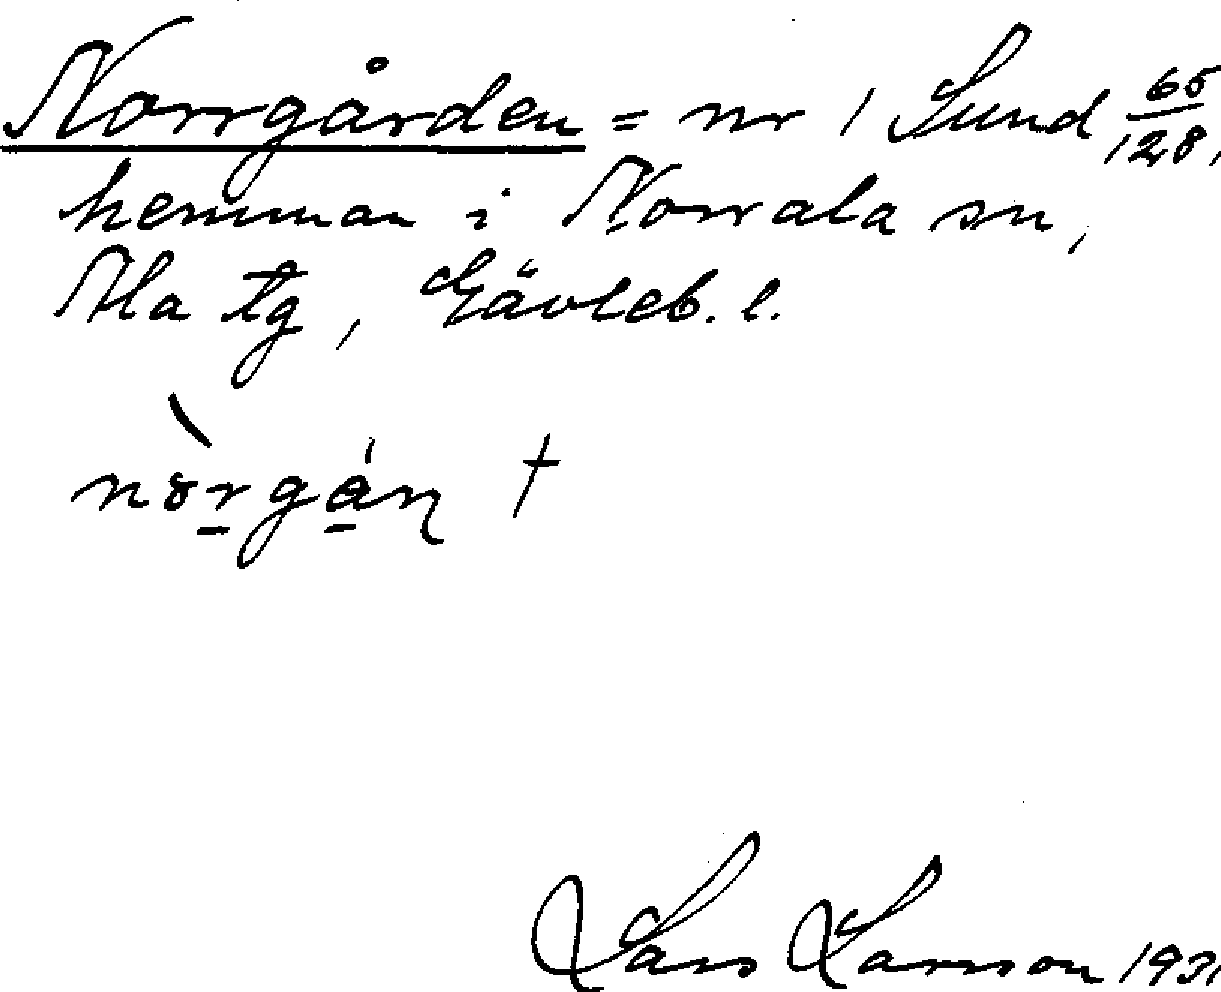 Norrgården = nr 1 Sund 65/128,
hemman i Norrala sn,
Ala tg, Gävleb. l.
Lars Larsson 1931